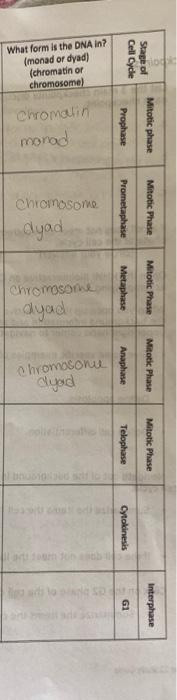 Stage of
Cell Cycle
Mitotic phase
Prophase
Mitotic Phase
Prometaphase
Mitotic Phase
Metaphase
Mitotic Phase
Anaphase
Mitotic Phase
Telophase
Cytokinesis
Interphase
G1
What form is the DNA in?
(monad or dyad)
(chromatin or
chromosome)
chromatin
monad
chromosome
dyad
chromosome
dyad
chromosome
dyad